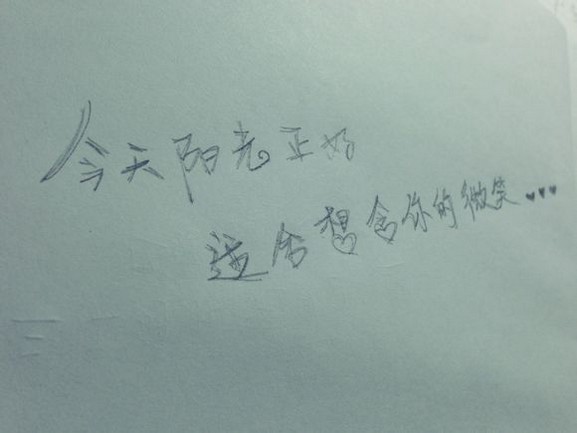 今天阳光正好
适合想念你的微笑...